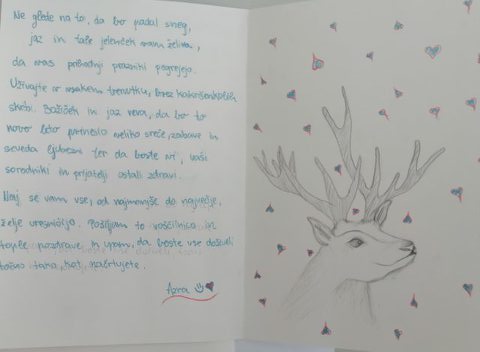 Ne glede na to, da bo padal sneg,
jaz in tale jelenček vam želiva,
da vas prihodnji prazniki pogrejejo.
Uživajte v vsakem trenutku, brez kakršnihkoli
skrbi. Božiček in jaz veva, da bo to
novo leto prineslo veliko sreče, zabave in
seveda ljubezni ter da boste vi, vaši
sorodniki in prijatelji ostali zdravi.
Naj se vam vse, od najmanjše do največje,
želje uresničijo. Pošiljam to voščilnico in
tople pozdrave in upam, da boste vse doživeli
točno tako, kot načrtujete.
Azra